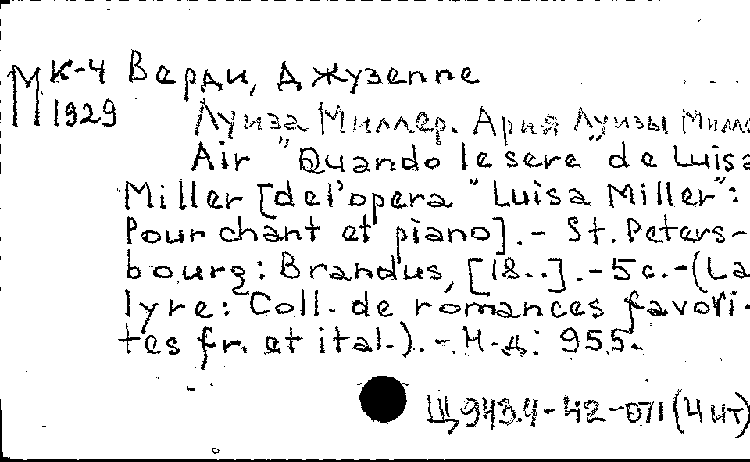 М К-4 Верди, Джузеппе
1929
Луиза Миллер. Ария Луизы Милле
Air "Quando le sere" de Luisa
Miller [de l'opera "Luisa Miller":
Pour chant et piano].- St. Peters-
bourg: Brandus, [18..].-5 с.-(La
lyre: Coll. de romances favori-
tes fr. et ital.).-Н.д: 955.
Щ943.4-42-071(4ит)